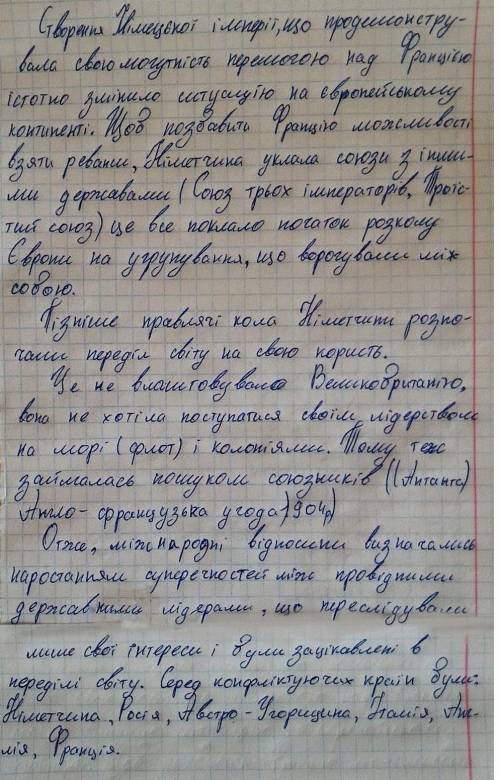 Створення Німецької імперії, що продемонстру-
вала свою могутність перемогою над Францією
істотно змінило ситуацію на європейському
континенті. Щоб позбавити Францію можливості
взяти реванш, Німеччина уклала союзи з інши-
ми державами (Союз трьох імператорів, Троїс-
тий союз) це все поклало початок розколу
Європи на угрупування, що ворогували між
собою.
Пізніше правлячі кола Німеччини розпо-
чали переділ світу на свою користь.
Це не влаштовувало Великобританію,
вона не хотіла поступатися своїм лідерством
на морі (флот) і колоніями. Тому теж
займалась пошуком союзників ((Антанта)
Англо-французька угода)1904р)
Отже, міжнародні відносини визначались
наростанням суперечностей між провідними
державними лідерами, що переслідували
лише свої інтереси і були зацікавлені в
переділі світу. Серед конфліктуючих країн були:
Німеччина, Росія, Австро-Угорщина, Італія, Анг-
лія, Франція.